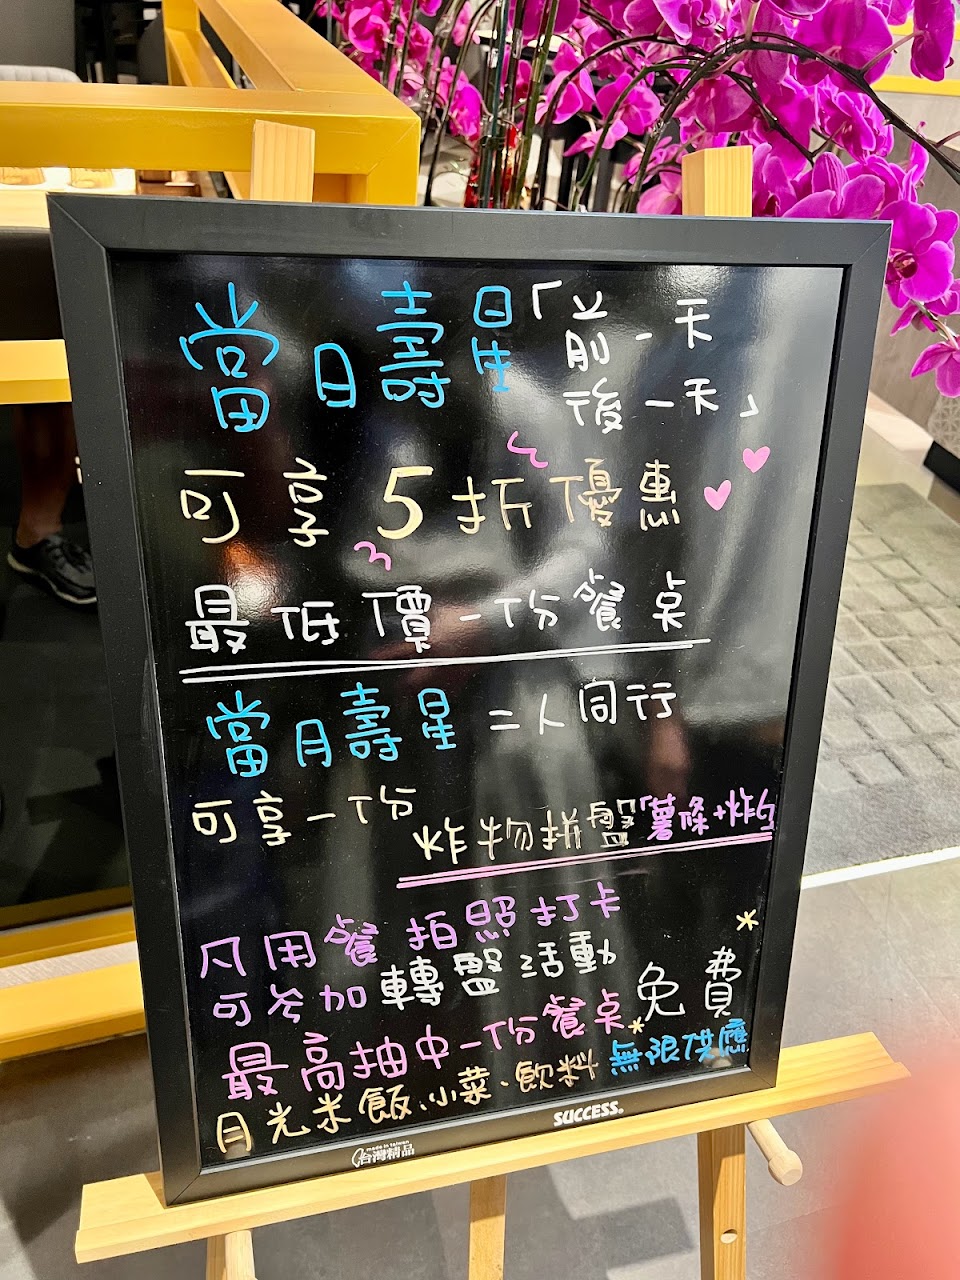 當日壽星「前一天
後一天」
可享5折優惠
最低價一份餐桌
當月壽星 二人同行
可享一份
炸物拼盤「薯條+炸
凡用餐拍照打卡
可參加轉盤活動
最高抽中一份餐桌 免費
月光米飯、小菜、飲料 無限供應
SUCCESS®
made in taiwan
台灣精品